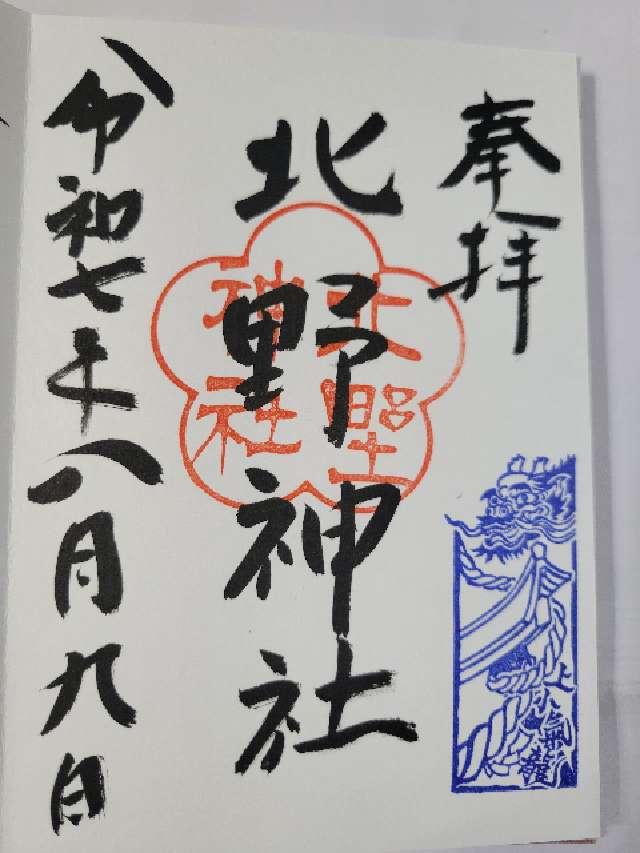 奉拝
北野神社
北野
神社
令和七年八月九日